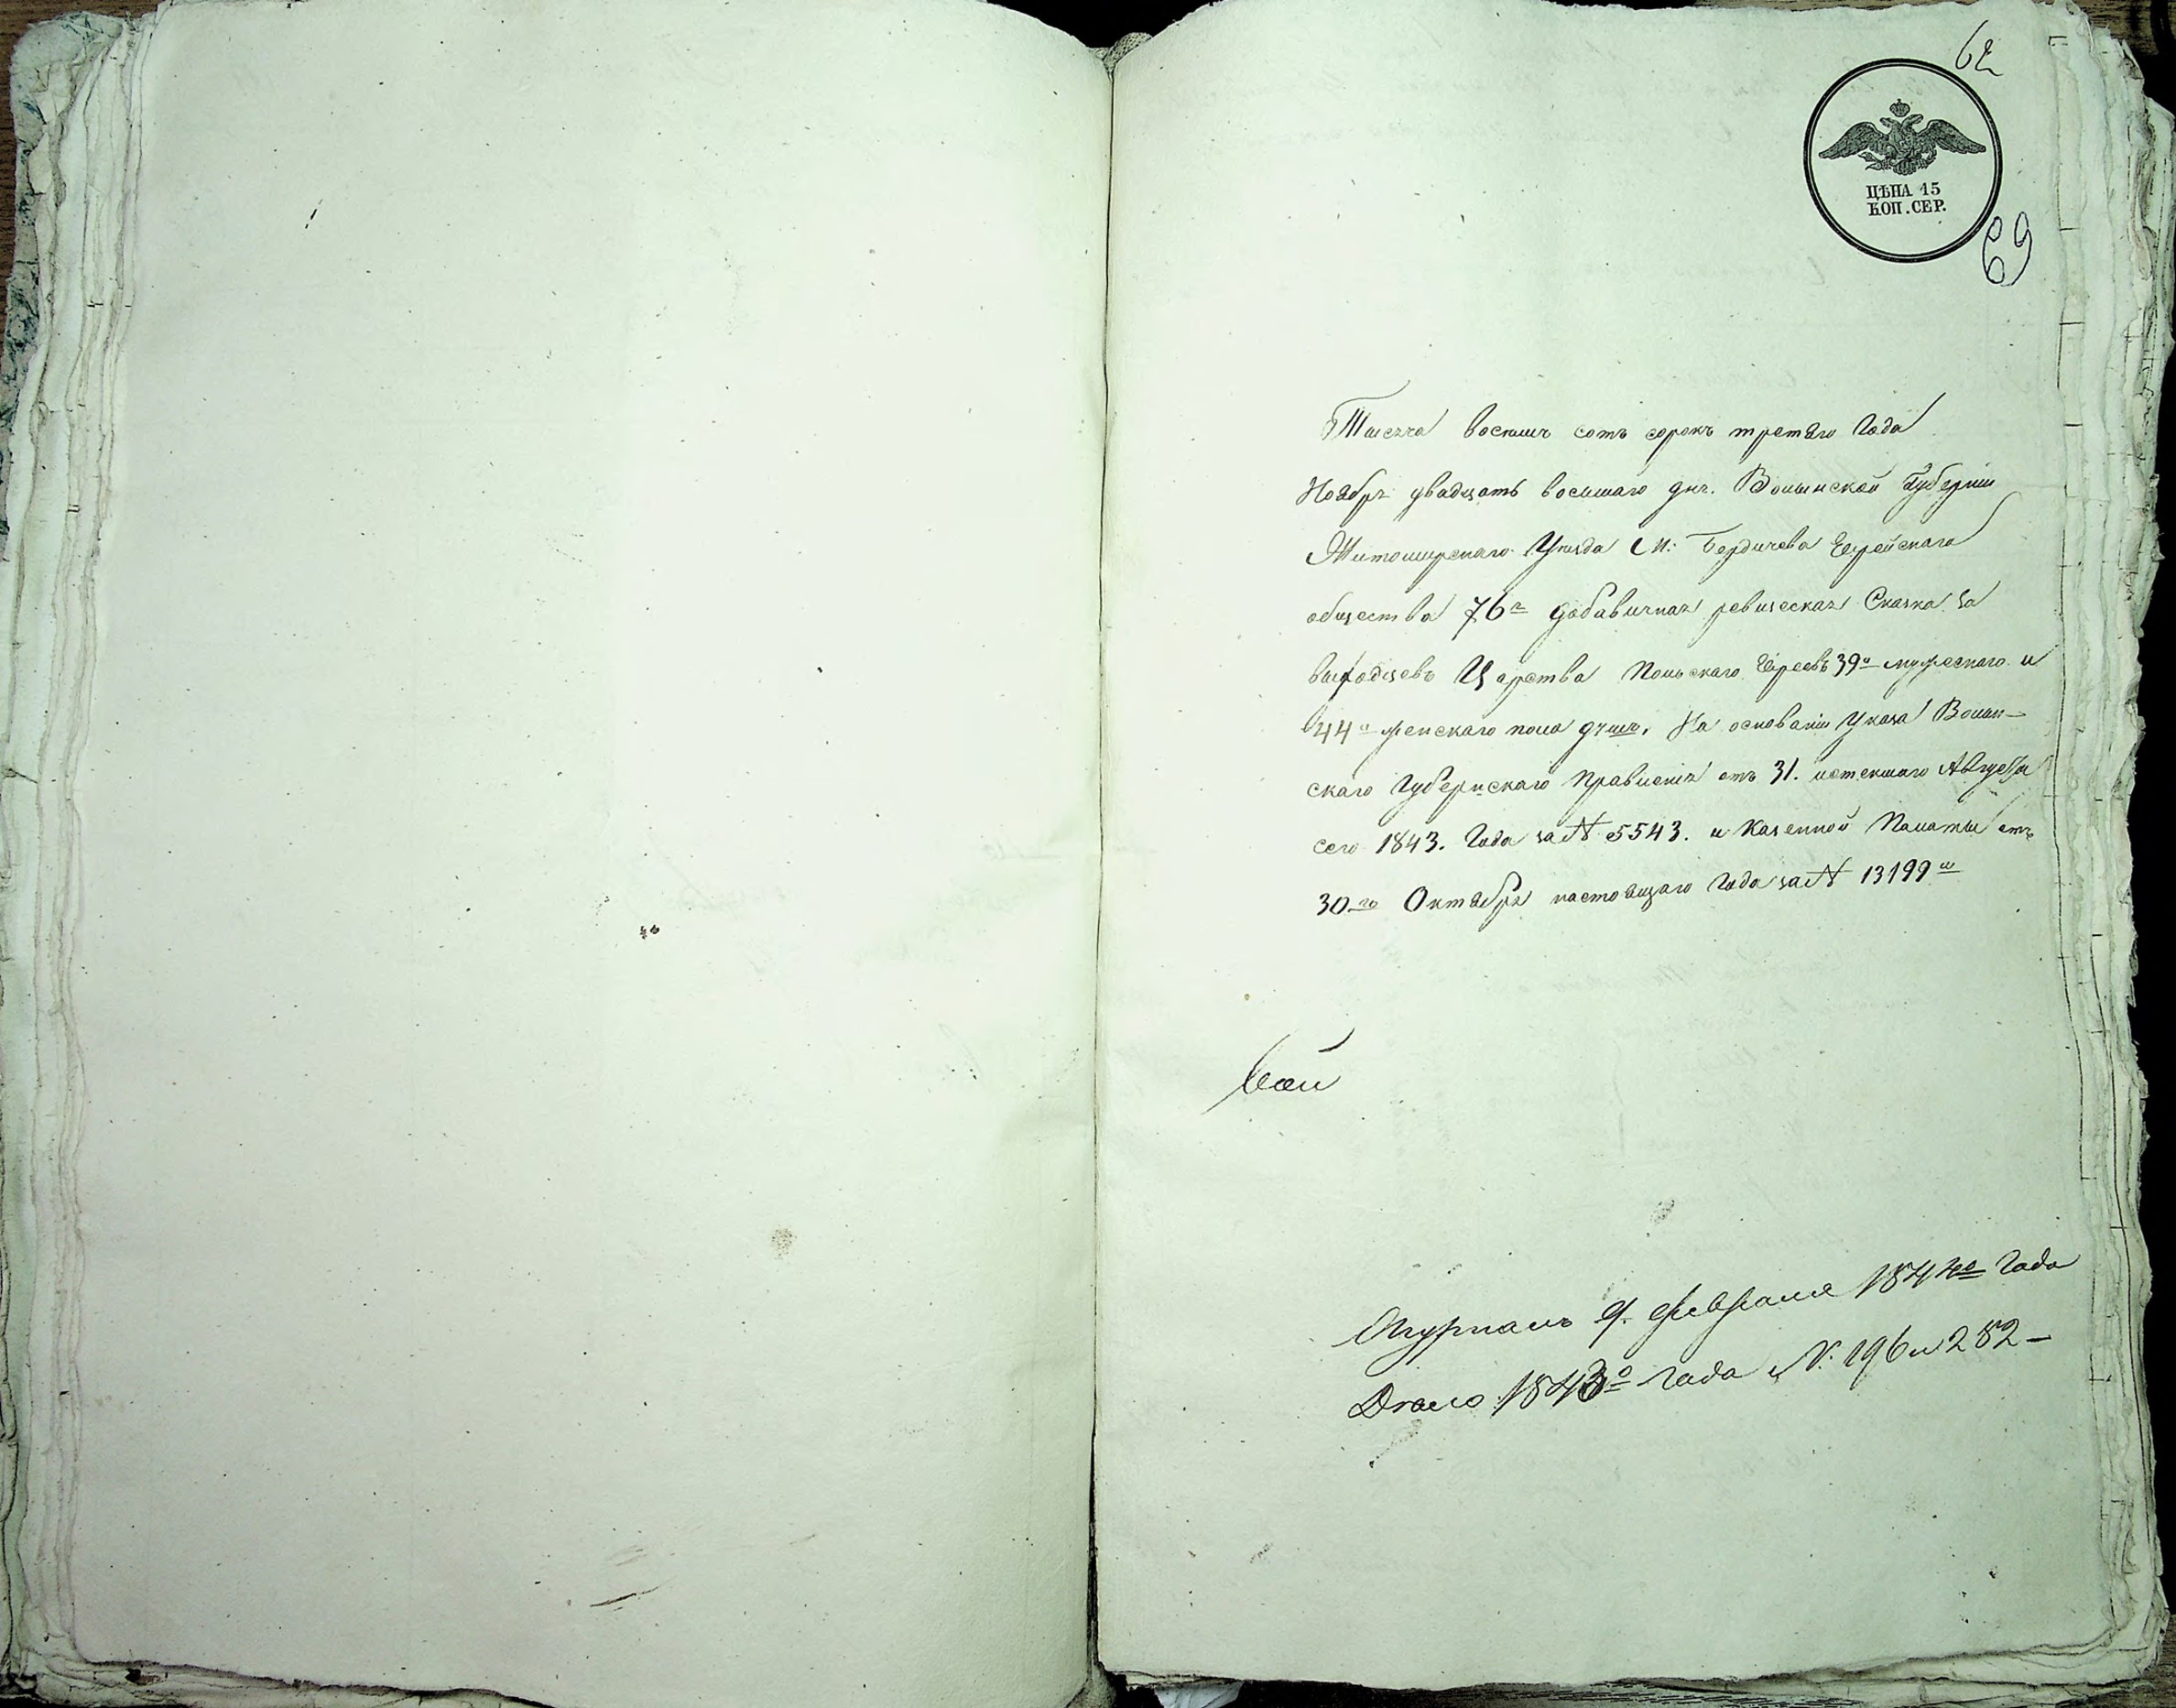 62
ЦѢНА 15
КОП. СЕР.
69
Тысяча восемь сотъ сорокъ третяго Года
Ноября двадцать восьмаго дня. Волынской Губерніи
Житомирскаго Уѣзда М: Бердичева Еврейскаго
общества 76я добавичная ревизская Сказка за
выходцевъ Царства Польскаго Евреевъ 39о мужескаго и
44о женскаго пола душъ. На основаніи Указа Волын-
скаго Губернскаго Правленія отъ 31. истекшаго Августа
сего 1843. Года за № 5543. и Казенной Палаты отъ
30го Октября настоящаго Года за № 13199м
Журналъ 9. Февраля 1844го Года
Дѣло 1843о Года №: 196 и 282 –